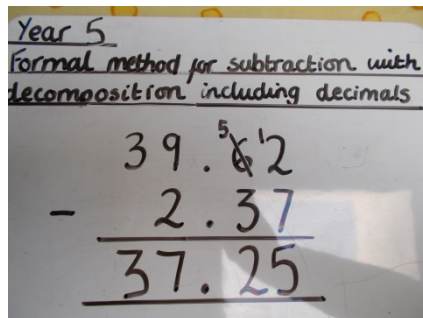 Year 5
Formal method for subtraction with
decomposition including decimals
39.⁵6̶¹2
- 2.37
37.25